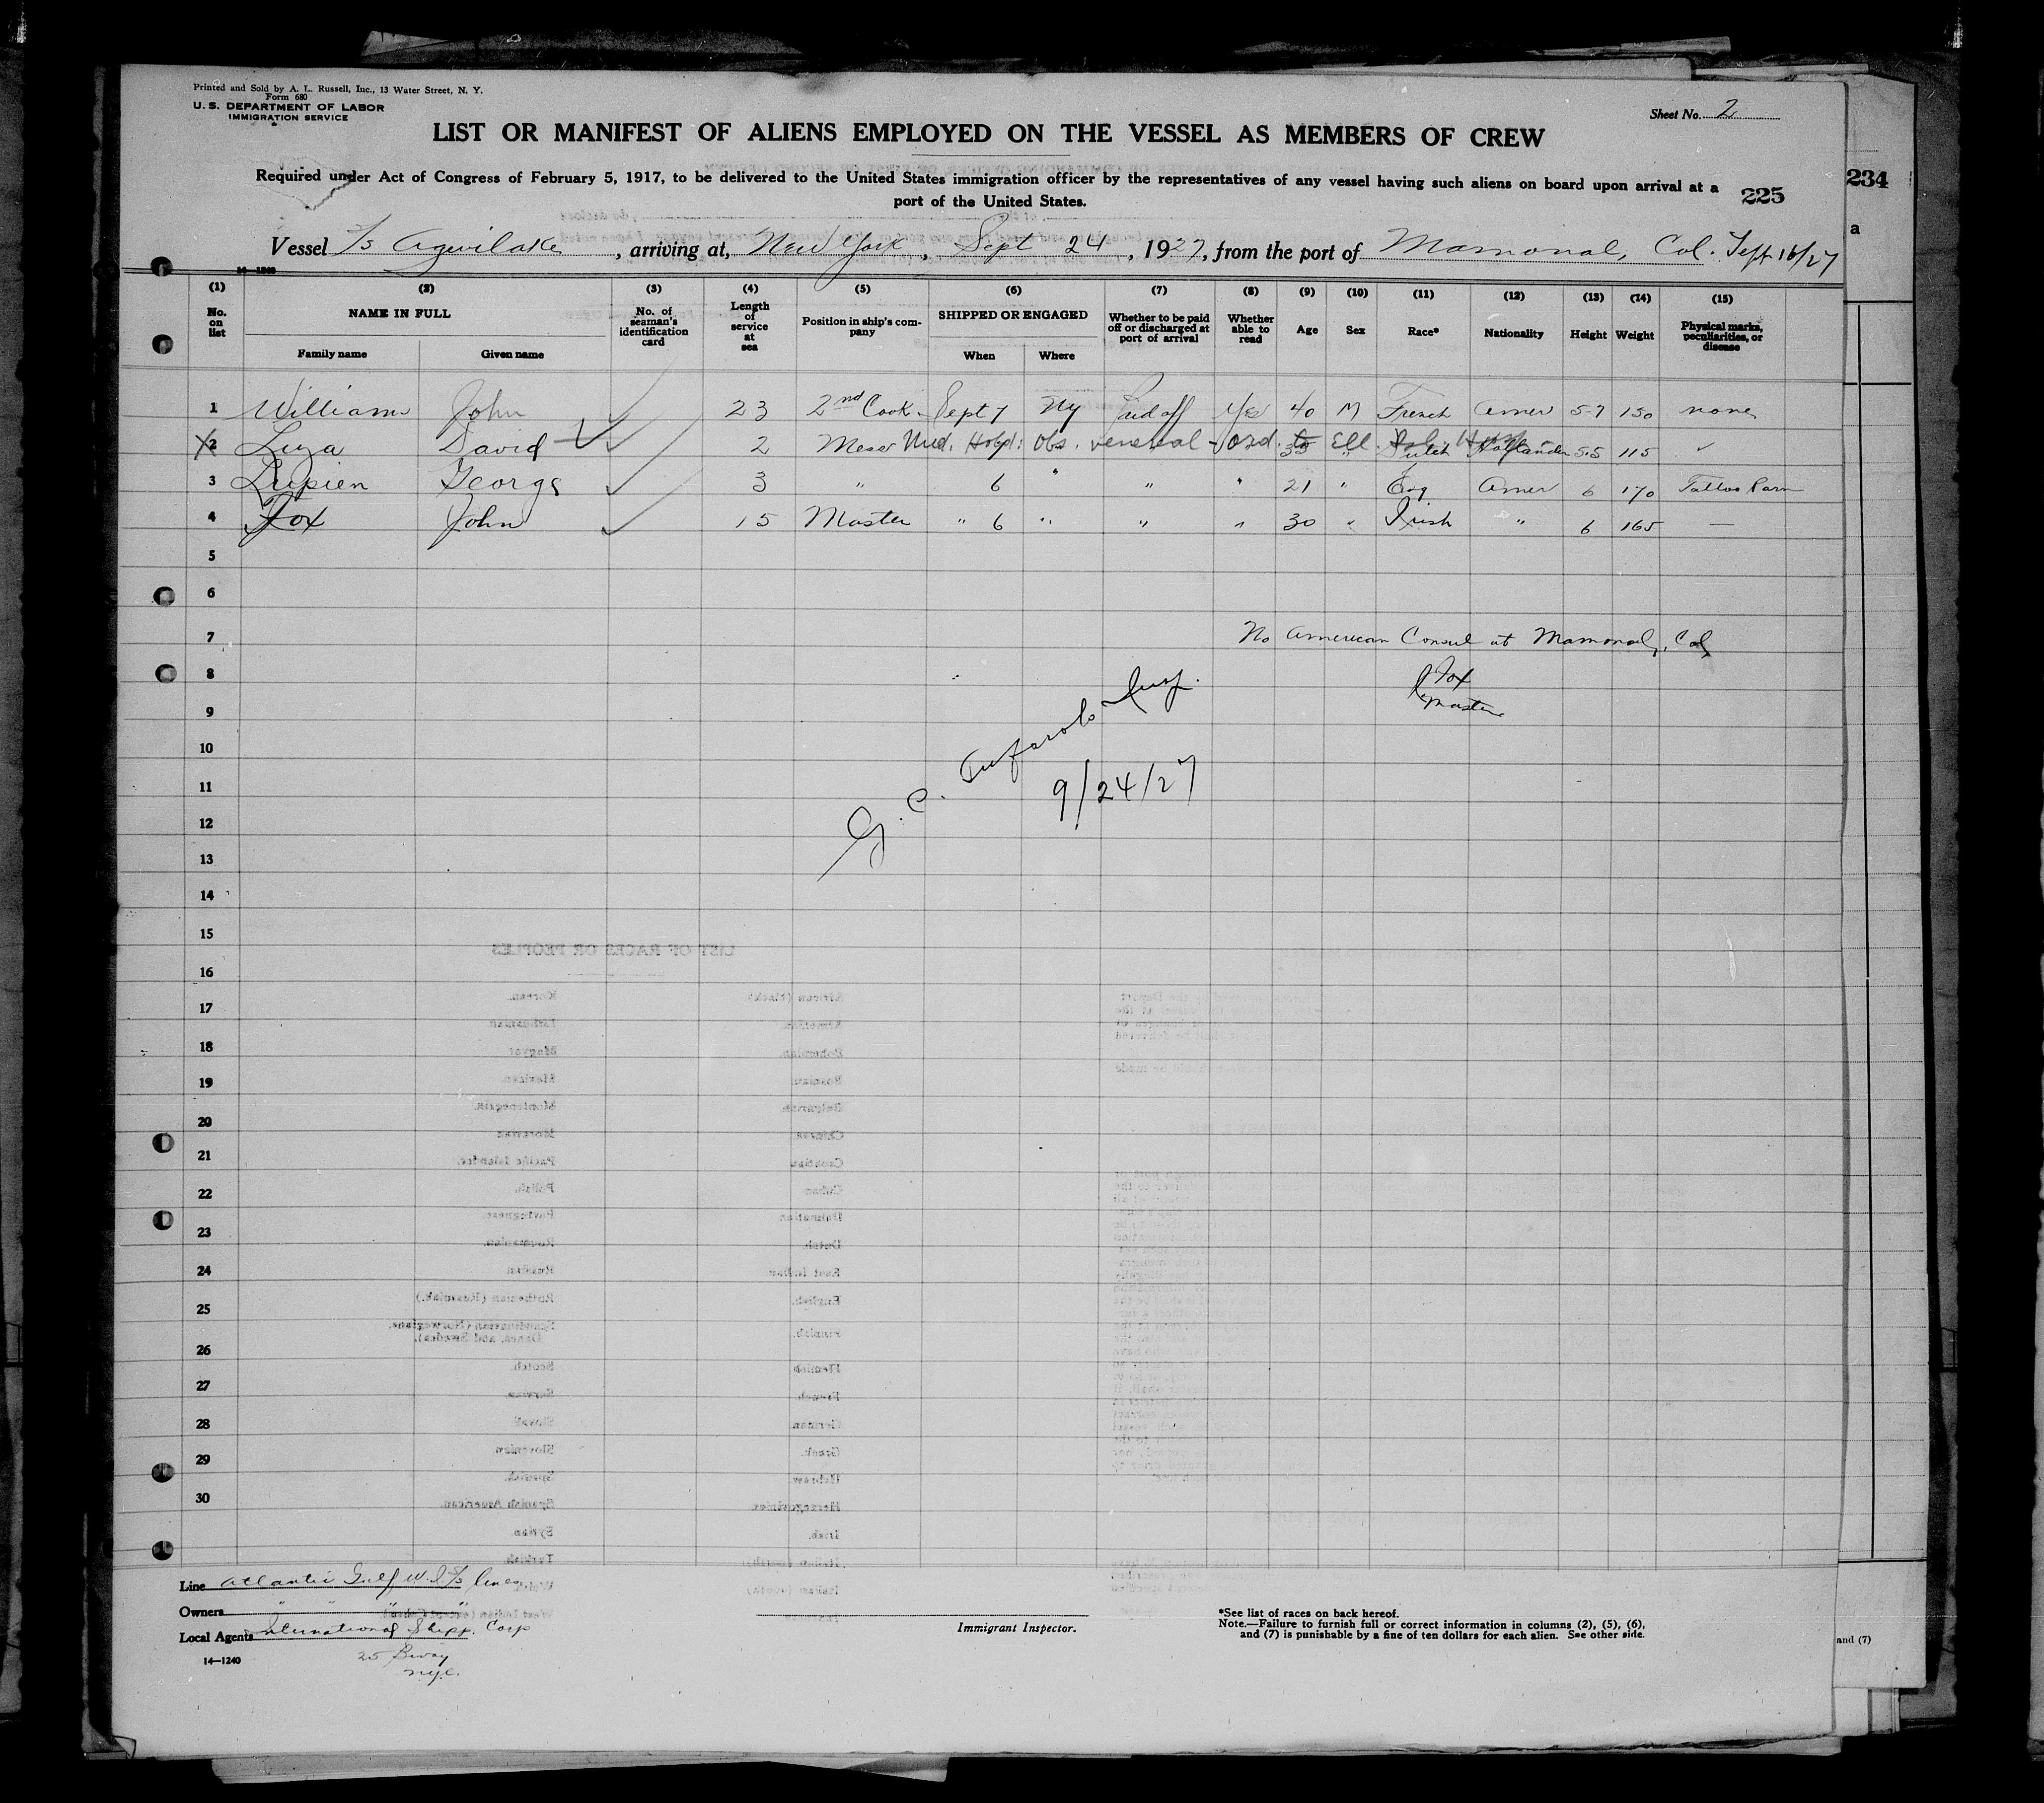 Printed and Sold by A. L. Russell, Inc., 13 Water Street, N. Y.
Form 680
U. S. DEPARTMENT OF LABOR
IMMIGRATION SERVICE
Sheet No. 2
LIST OR MANIFEST OF ALIENS EMPLOYED ON THE VESSEL AS MEMBERS OF CREW
Required under Act of Congress of February 5, 1917, to be delivered to the United States immigration officer by the representatives of any vessel having such aliens on board upon arrival at a
port of the United States.
225
234
a
Vessel S/S Agwilake, arriving at, New York, Sept 24, 1927, from the port of Mamonal, Col. Sept 16/27
14—1240
(1) (2) (3) (4) (5) (6) (7) (8) (9) (10) (11) (12) (13) (14) (15)
No. on list NAME IN FULL Family name Given name No. of seaman's identification card Length of service at sea Position in ship's company SHIPPED OR ENGAGED When Where Whether to be paid off or discharged at port of arrival Whether able to read Age Sex Race* Nationality Height Weight Physical marks, peculiarities, or disease
1 William John 23 2nd Cook Sept 7 Ny Paid off Yes 40 M French Amer 5-7 150 none
X2 Luza David 2 Mess Med. Hosp: Obs. venereal - Ord. 35 Ell. Dutch Hollander 5.5 115 ✓
3 Lupien George 3 " 6 " " " 21 " Eng Amer 6 170 Tattoo
4 Fox John 15 Master " 6 " " " 30 " Irish " 6 165 —
5
6
7 No American Consul at Mamonal, Col
8 J Fox
Master
9
10
11 9/24/27
G. C. Insp.
12
13
14
15
16
17
18
19
20
21
22
23
24
25
26
27
28
29
30
Line Atlantic Gulf W.I. S/S Lines
Owners " " " "
Local Agents International Shipp. Corp
25 Bway
NYC.
14—1240
Immigrant Inspector.
*See list of races on back hereof.
Note.—Failure to furnish full or correct information in columns (2), (5), (6),
and (7) is punishable by a fine of ten dollars for each alien. See other side.
and (7)